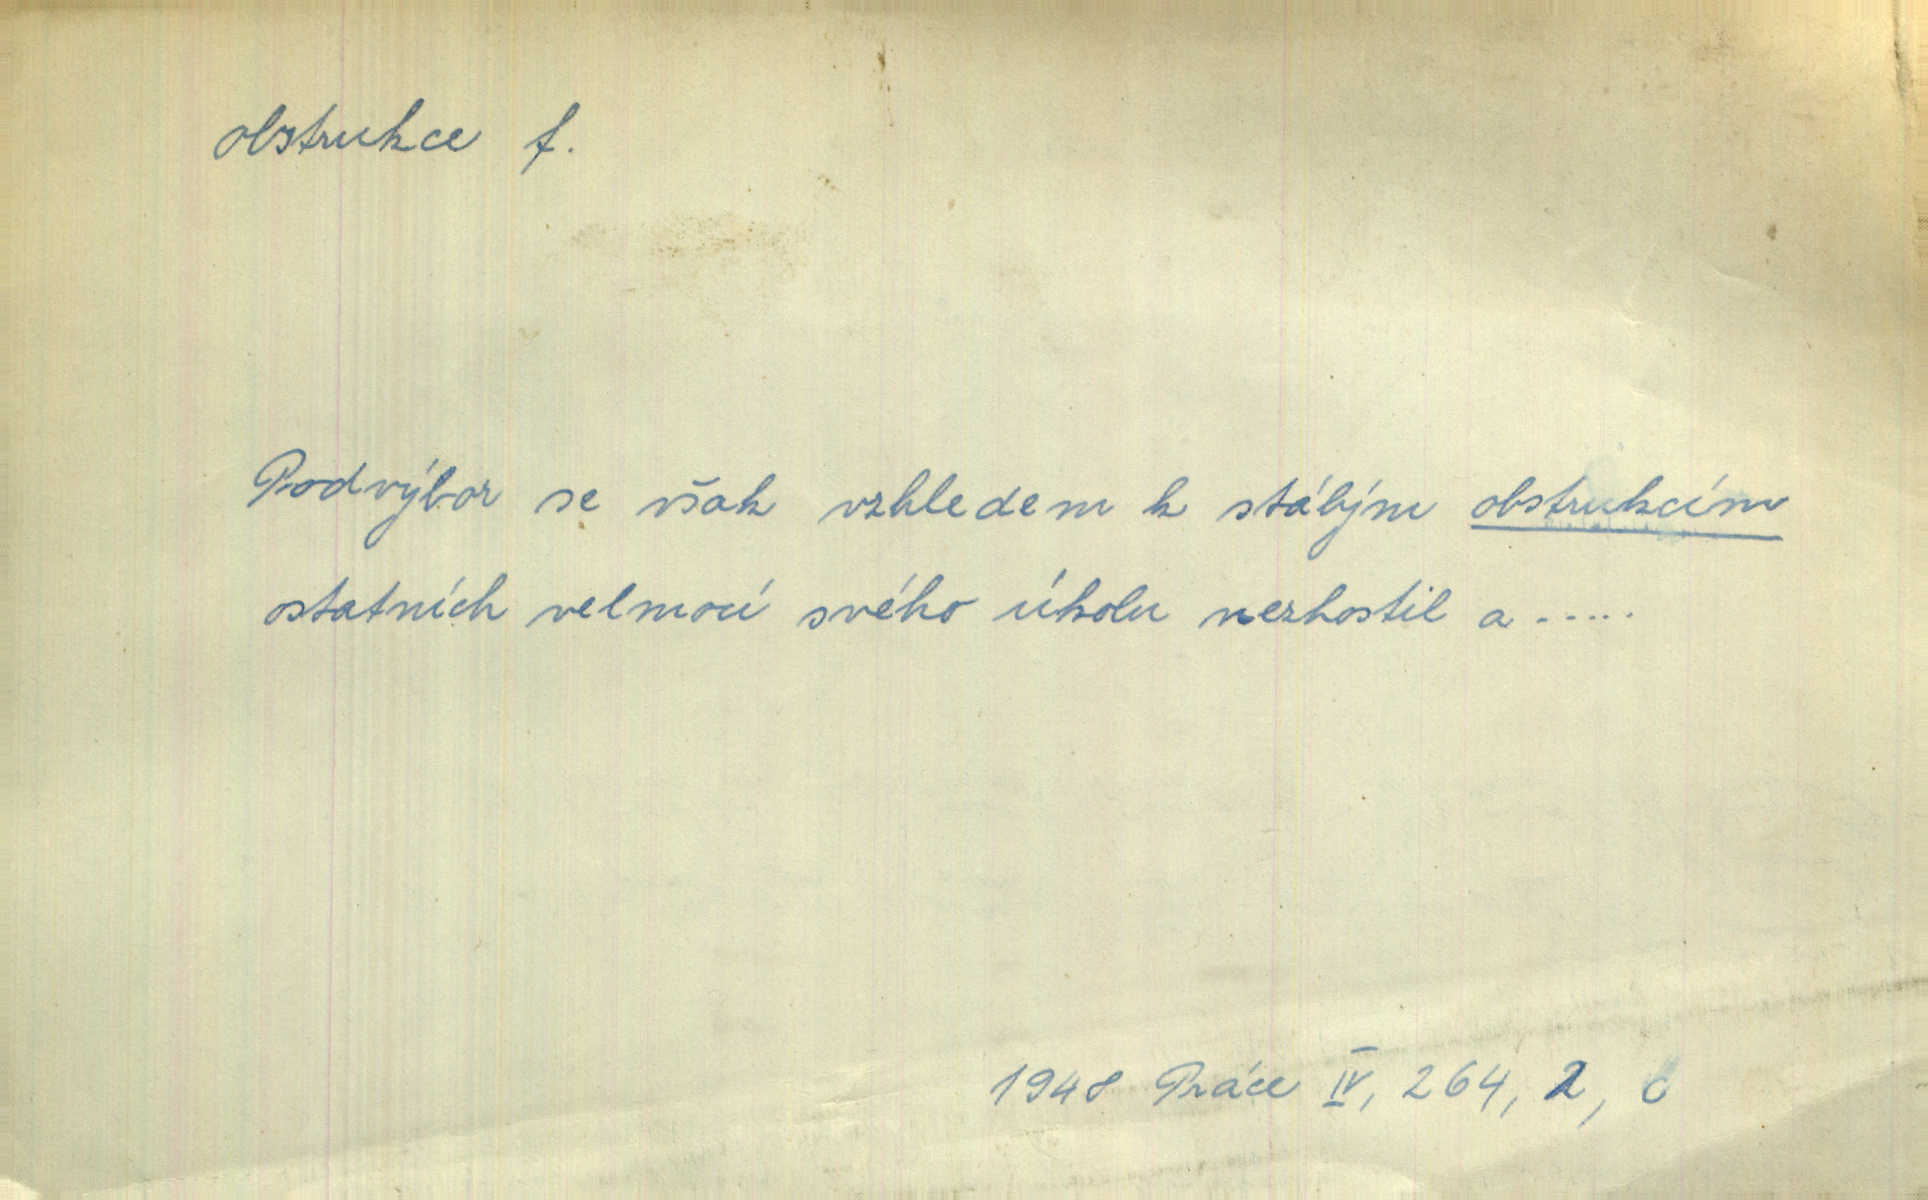 obstrukce f.
Podvýbor se však vzhledem k stálým obstrukcím
ostatních velmocí svého úkolu nezhostil a .....
1948 Práce IV, 264, 2, 6